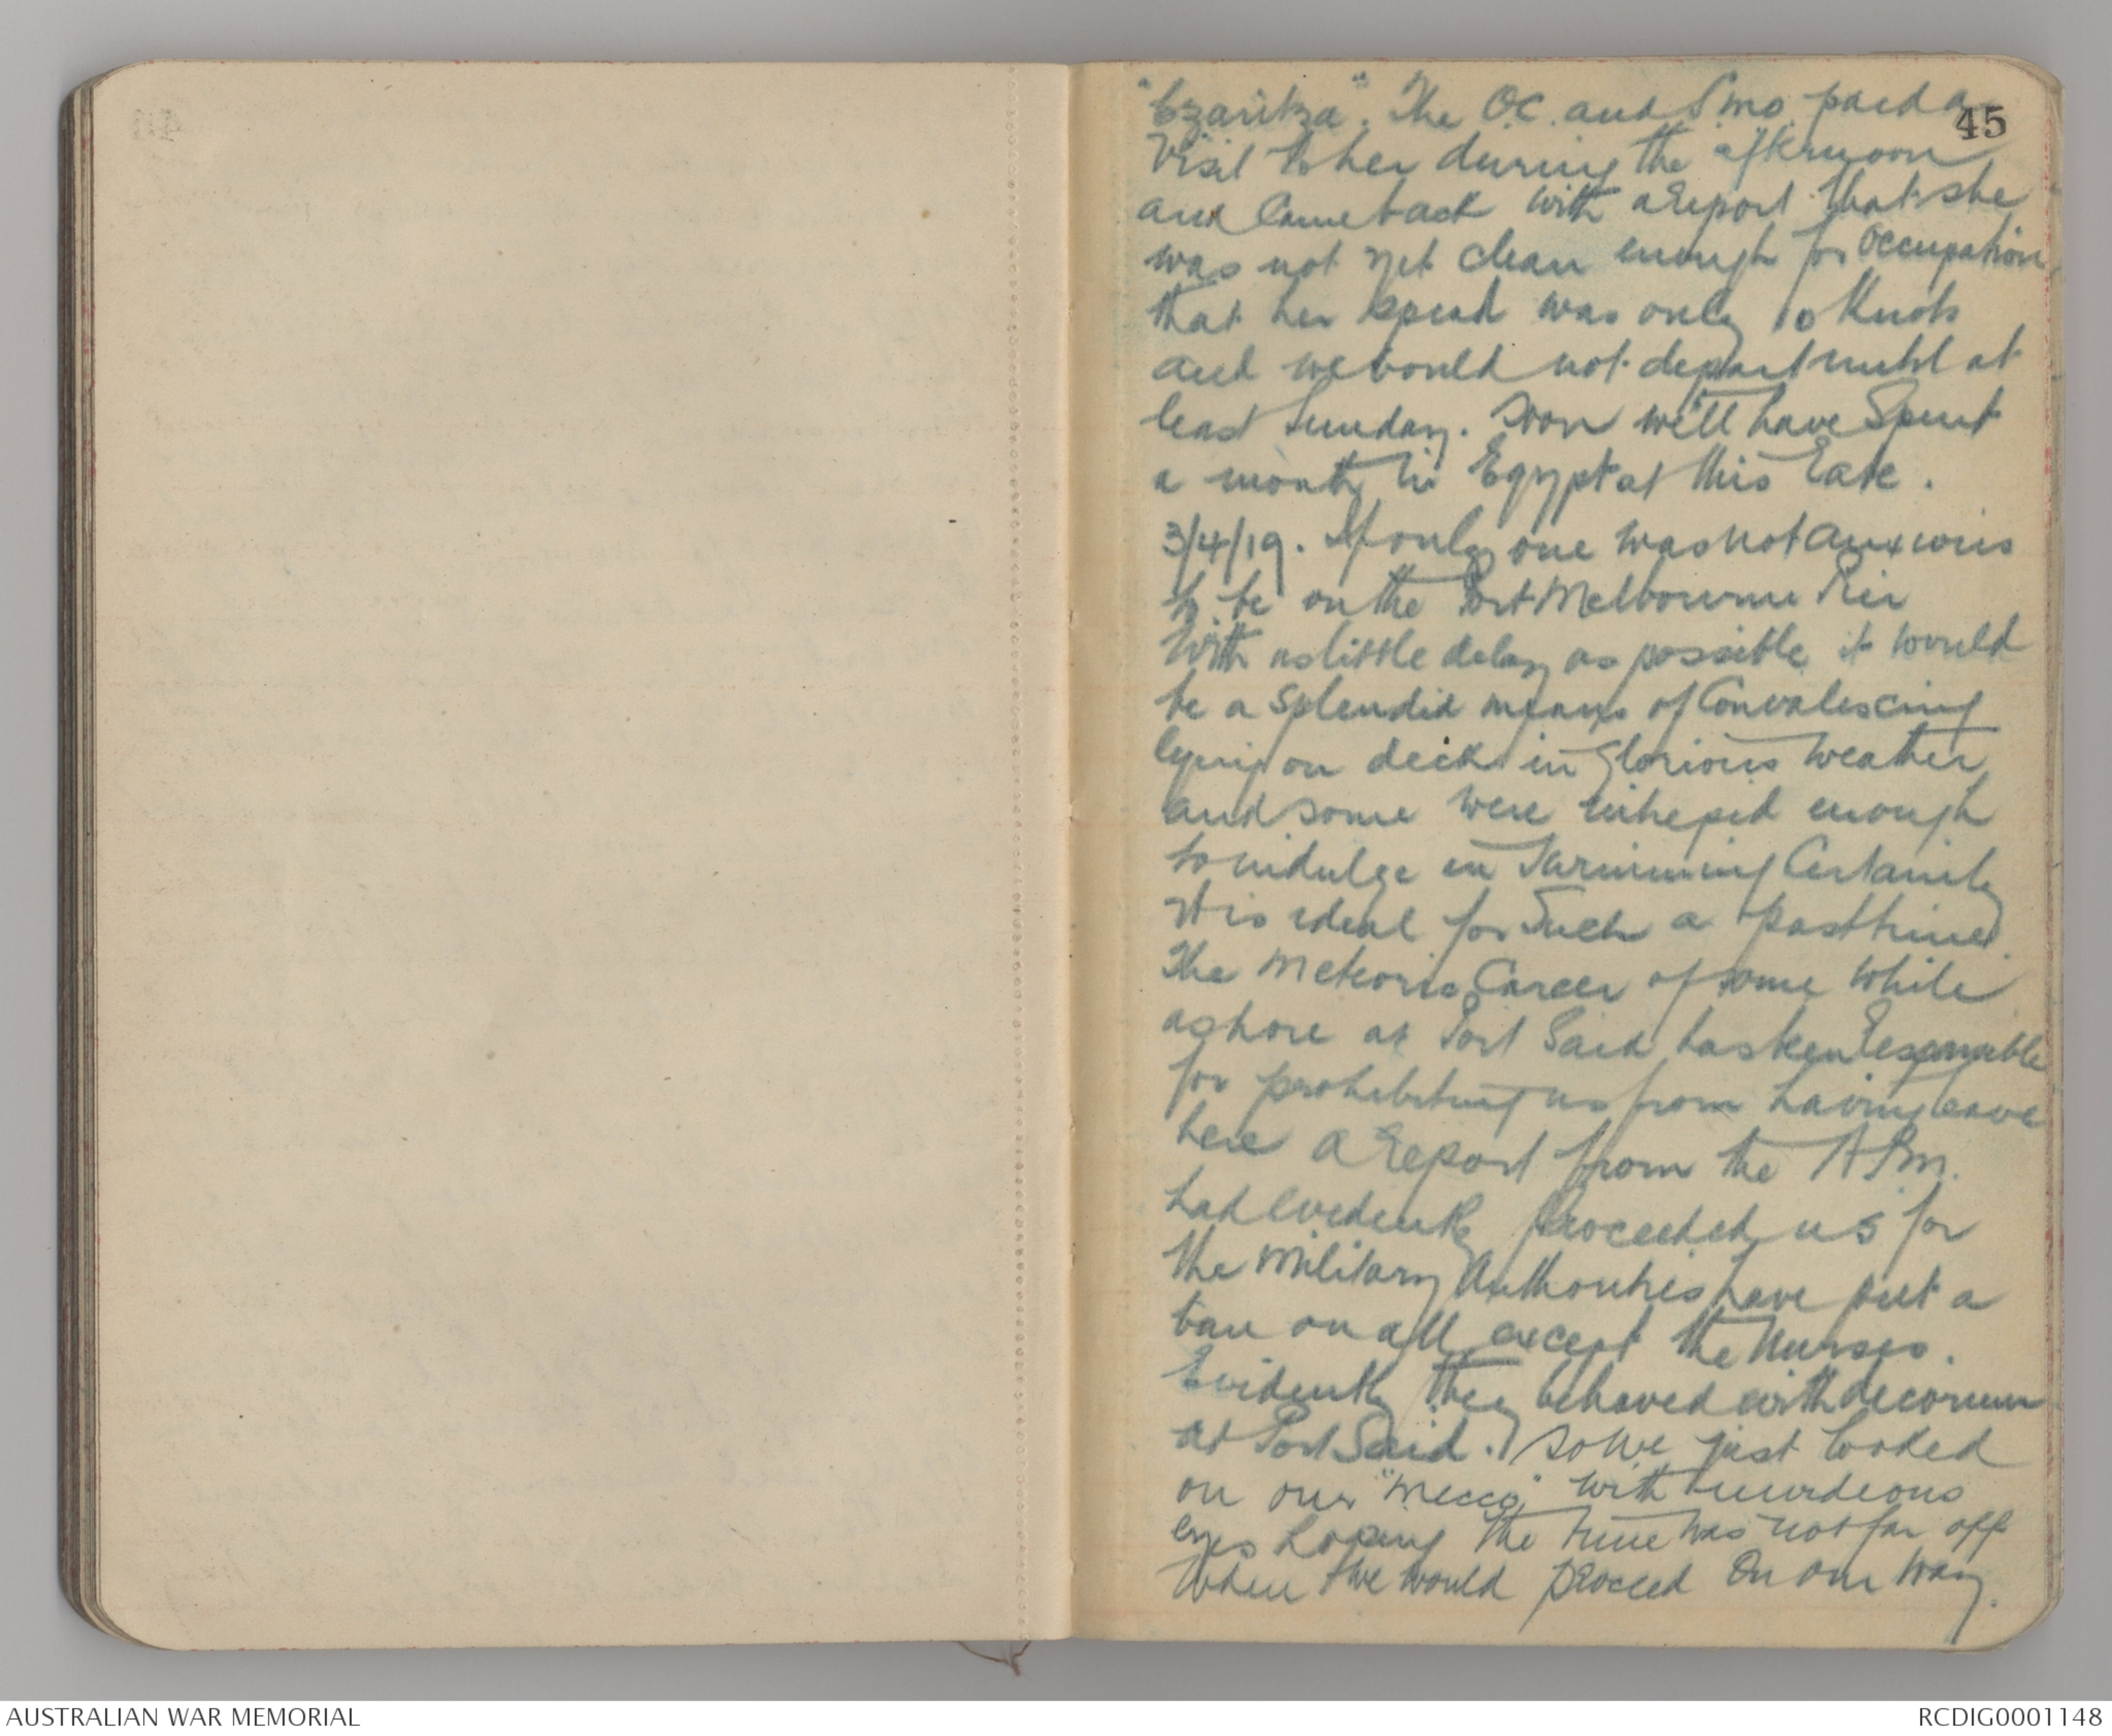 45
"Czaritza". The O.C. and S.M.O. paid a
visit to her during the afternoon
and came back with a report that she
was not yet clean enough for occupation
that her speed was only 10 knots
and we would not depart until at
least Sunday. Soon we'll have spent
a month in Egypt at this rate.
3/4/19. If only one was not anxious
to be on the Port Melbourne Pier
with as little delay as possible it would
be a splendid means of convalescing
lying on deck in glorious weather
and some were intrepid enough
to indulge in swimming Certainly
it is ideal for such a pasttime.
The meteoric career of some while
ashore at Port Said has been responsible
for prohibiting us from having leave
here A report from the A.P.M.
had evidently proceeded us for
the Military Authorities have put a
ban on all except the Nurses.
Evidently they behaved with decorum
at Port Said. So we just looked
on our "Mecca" with
eyes hoping the time was not far off
when we would proceed on our way.
AUSTRALIAN WAR MEMORIAL
RCDIG0001148